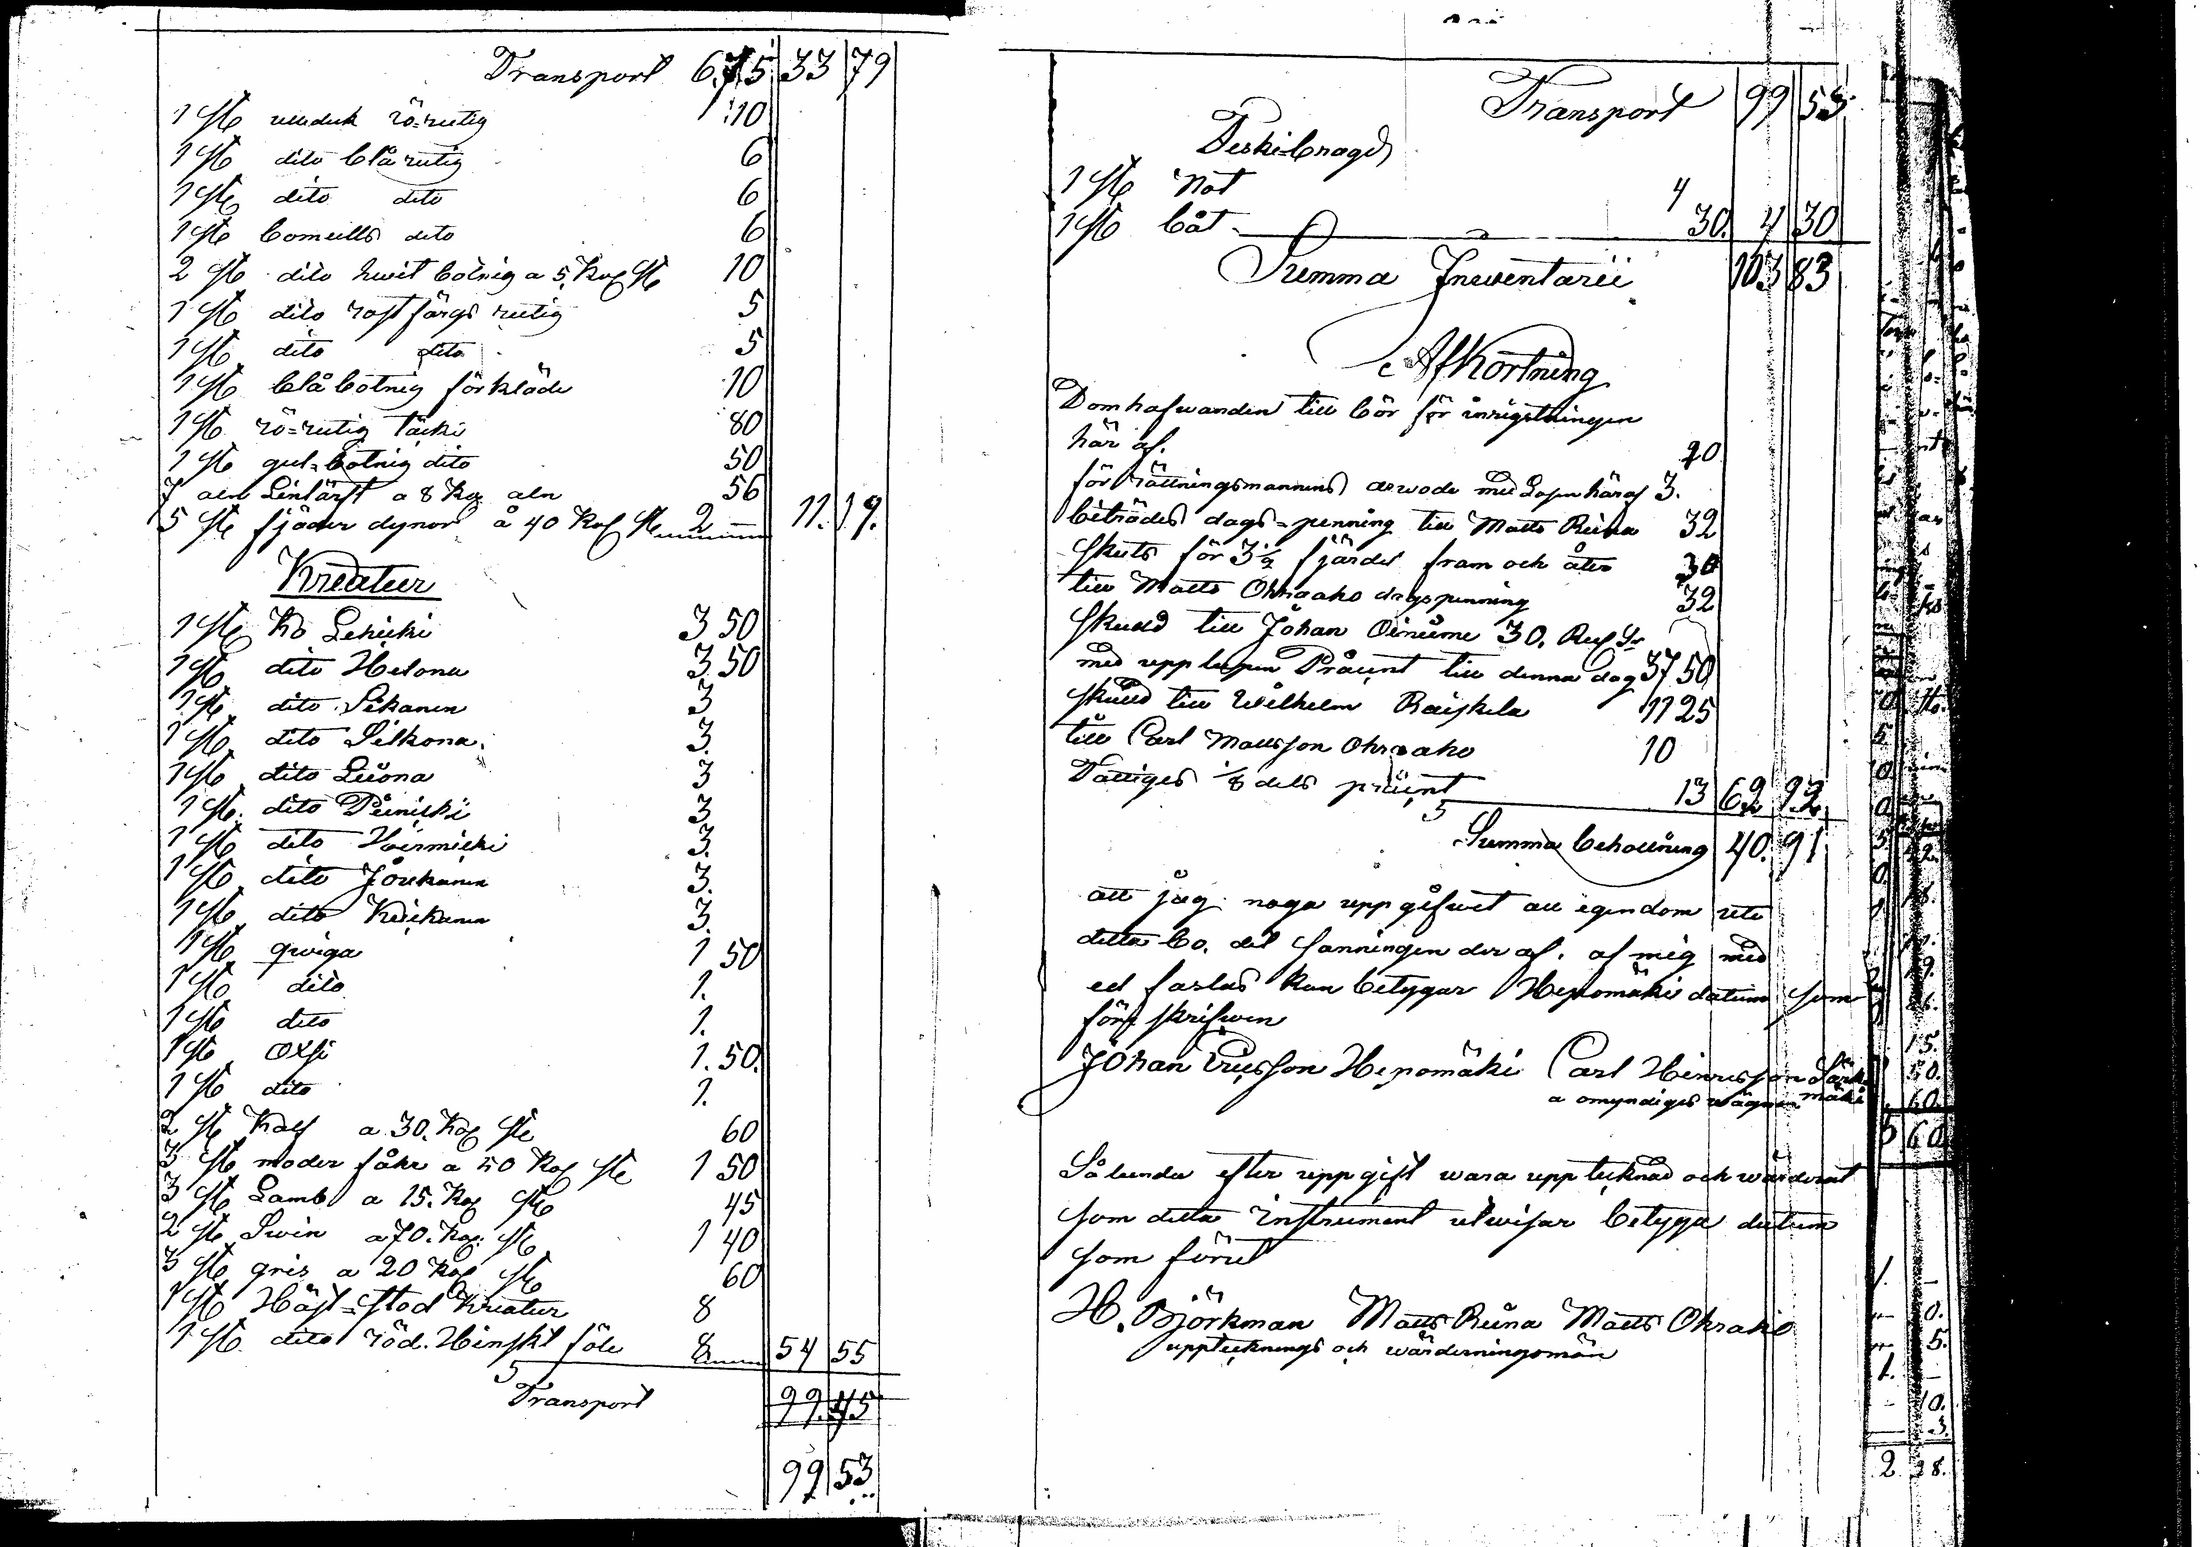 Transport 6.75 33 79
1 st ulleduk rö-rutig 10
1 st dito blå rutig 6
1 st dito dito 6
1 st bomulls dito 6
2 st dito hwit botnig a 5. Kop st 10
1 st dito rostfärgs rutig 5
1 st dito dito 5
1 st blå botnig förkläde 10
1 st rö=rutig täcki 80
1 st gul=botnig dito 50
7 aln Linlärft a 8 Kop aln 56
5 st fjäder dynor å 40 Kop st 2 — 11. 19.
Kreatur
1 st Ko Lehicki 3 50
1 st dito Helona 3 50
1 st dito Sikanen 3
1 st dito Silkona. 3.
1 st dito Luona 3
1 st. dito Piiniski 3
1 st dito Hiirmicki 3.
1 st dito Joukanen 3.
1 st dito Kuikanen 3.
1 st qwiga 1 50
1 st dito 1.
1 st dito 1.
1 st Oxe 1. 50.
1 st dito 1.
2 st Kalf a 30. Kop st 60
3 st moder fåhr a 50 Kop st 1 50
3 st Lamb a 15. Kop st 45
2 st Swin a 70. Kop. st 1 40
3 st gris a 20 Kop st 60
1 st Häst=stod Kreatur 8
1 st dito röd. Hinskt föle 8 54 55
Transport 99. 45
99 53
Transport 99 53
Feski-bragd
1 st Not 4
1 st båt 30. 4 30
Summa Inwentarii 103 83
Afkortning
Domhafwanden till bör för inrigstningen
här af. 20
för rättningsmannens arwode med Lösen häraf 3.
biträdes dags=penning till Matts Riina 32
skuts för 3 1/2 fjärdel fram och åter 30
till Matts Ohraaho dagspenning 32
skuld till Johan Oinume 30. Rub Sr
med upplupen Präunt till denna dag 37 50
skuld till Wilhelm Raiskela 11 25
till Carl Mattsson Ohraaho 10
Fattiges 1/8 dels präunt 13 62 92
Summa behollning 40. 91
att jag noga uppgifwet all egendom uti
detta bo. det sanningen der af. af mig med
ed fastas kan betygar Hepomäki datum som
förr skrifwen
Johan Ericsson Hepomäki Carl Hinricsson Särki
mäki
a omyndiges wägnar
Sålunda efter uppgift wara upptecknad och wärderat
som detta instrument utwisar betyga datum
som förut
H. Björkman Matts Riina Matts Ohraho
upptecknings och wärderningsmän